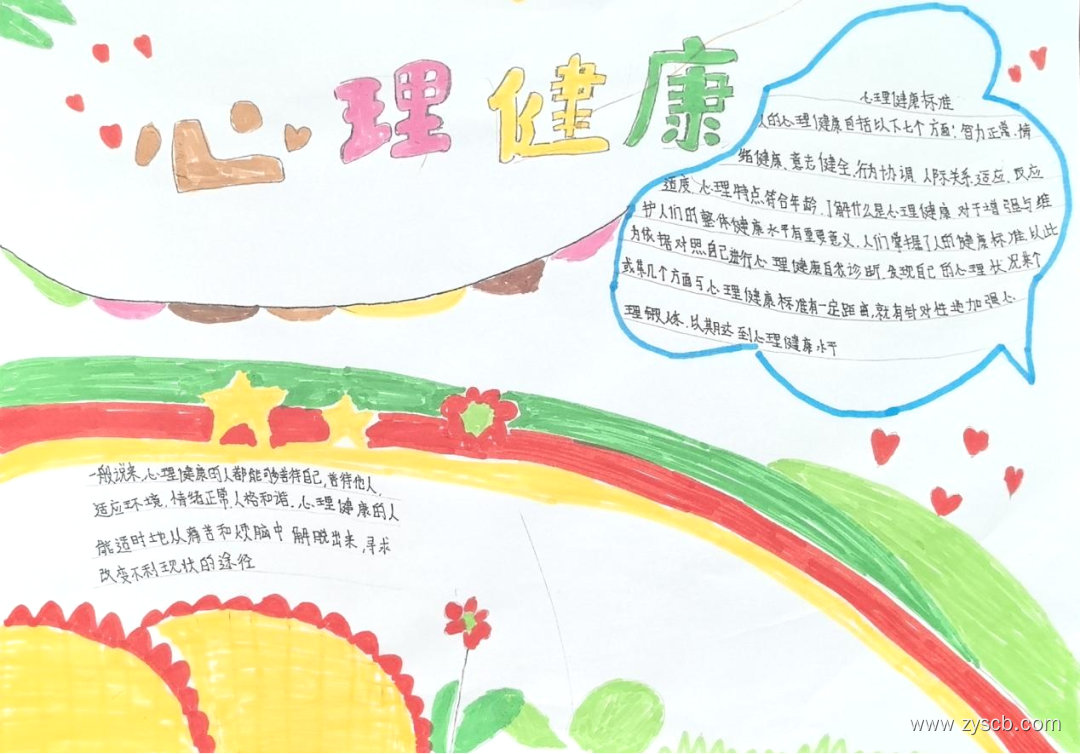 心理健康
心理健康标准
人的心理健康包括以下七个方面:智力正常、情
绪健康、意志健全、行为协调、人际关系适应、反应
适度、心理特点符合年龄,了解什么是心理健康对于增强与维
护人们的整体健康水平有重要意义,人们掌握了人的健康标准,以此
为依据对照自己进行心理健康自我诊断,发现自己的心理状况某个
或某几个方面与心理健康标准有一定距离,就有针对性地加强心
理锻炼,以期达到心理健康水平
一般说来,心理健康的人都能够善待自己,善待他人,
适应环境,情绪正常,人格和谐,心理健康的人
能适时地从痛苦和烦脑中解脱出来,寻求
改变不利现状的途径
www.zyscb.com